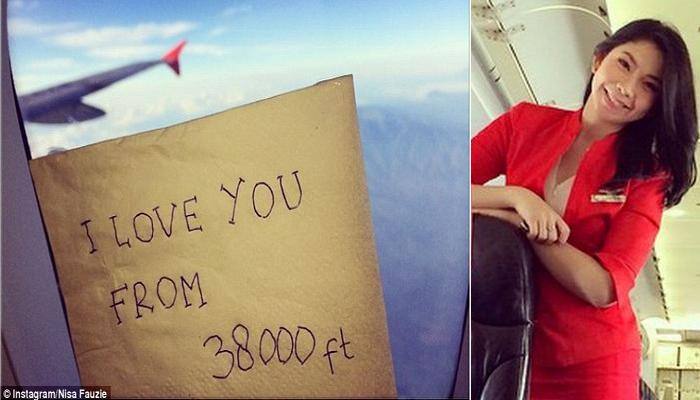 I LOVE YOU
FROM
38000 ft
© Instagram/Nisa Fauzie